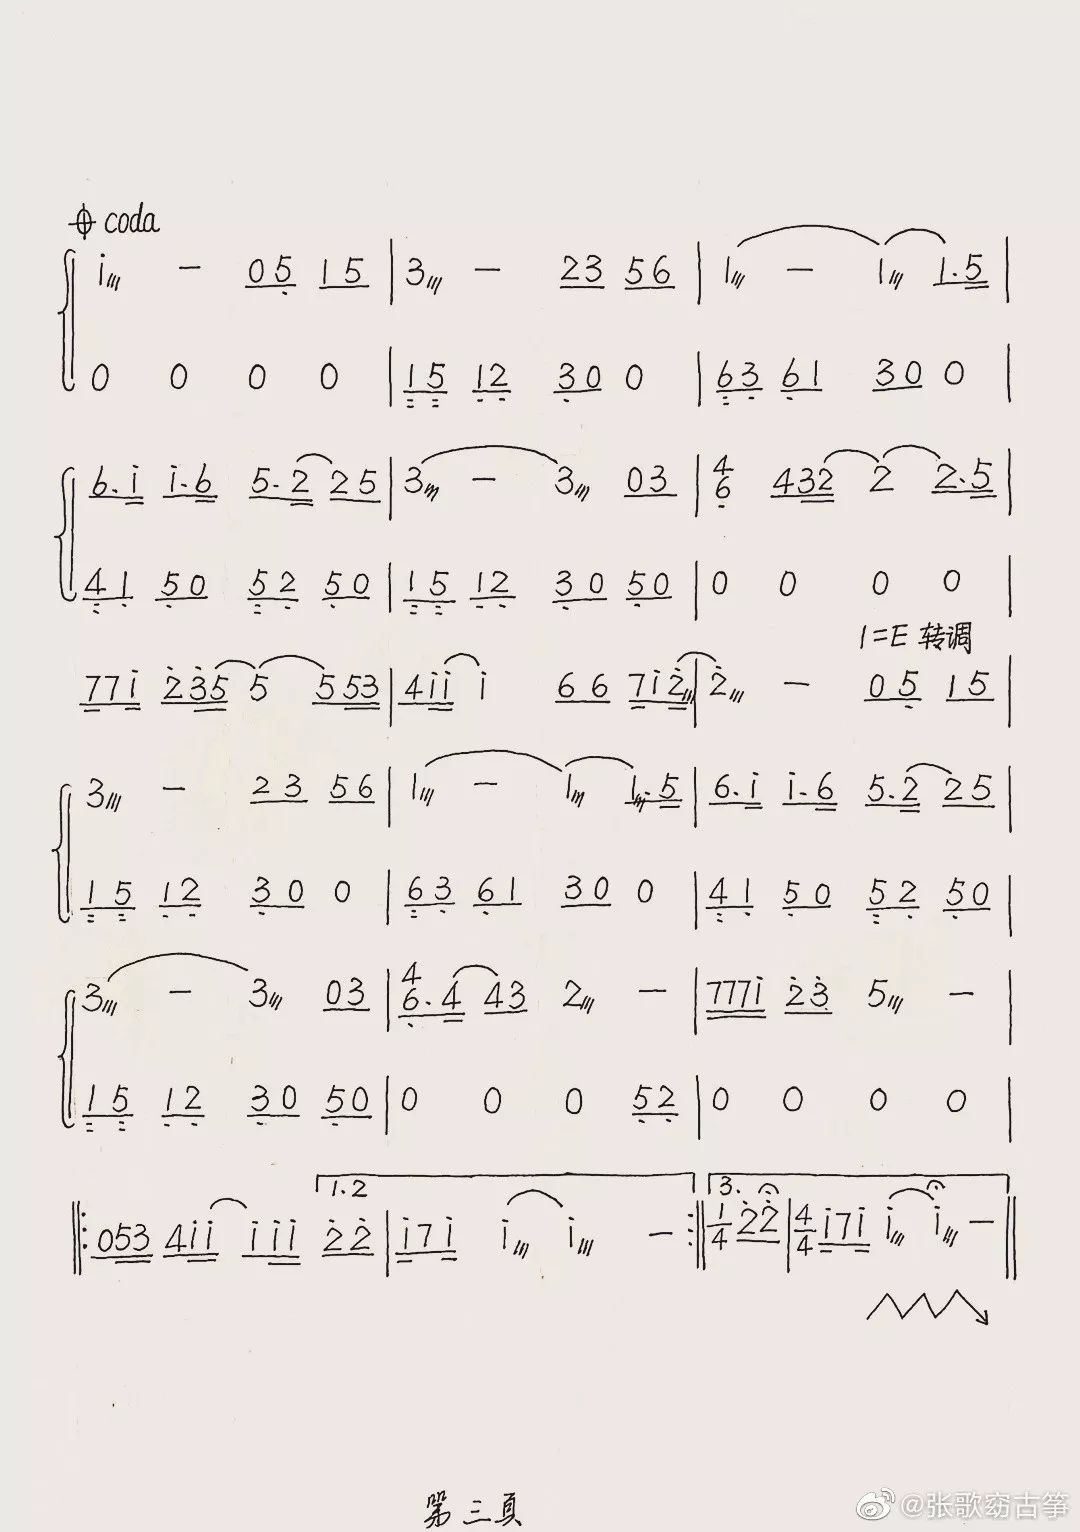 coda
i - 05 15 | 3 - 23 56 | 1 - 1 1.5 |
0 0 0 0 | 15 12 30 0 | 63 61 30 0 |
6.i i.6 5.2 25 | 3 - 3 03 | 4 6 432 2 2.5 |
41 50 52 50 | 15 12 30 50 | 0 0 0 0 |
1=E 转调
77i 235 5 553 | 4ii i 66 7i2 | 2 - 05 15 |
3 - 23 56 | 1 - 1 1.5 | 6.i i.6 5.2 25 |
15 12 30 0 | 63 61 30 0 | 41 50 52 50 |
3 - 3 03 | 4 6.4 43 2 - | 777i 23 5 - |
15 12 30 50 | 0 0 0 52 | 0 0 0 0 |
1.2 3.
053 4ii iii 22 | i7i i i - 1/4 22 | 4/4 i7i i i -
第三頁
@张歌窈古筝